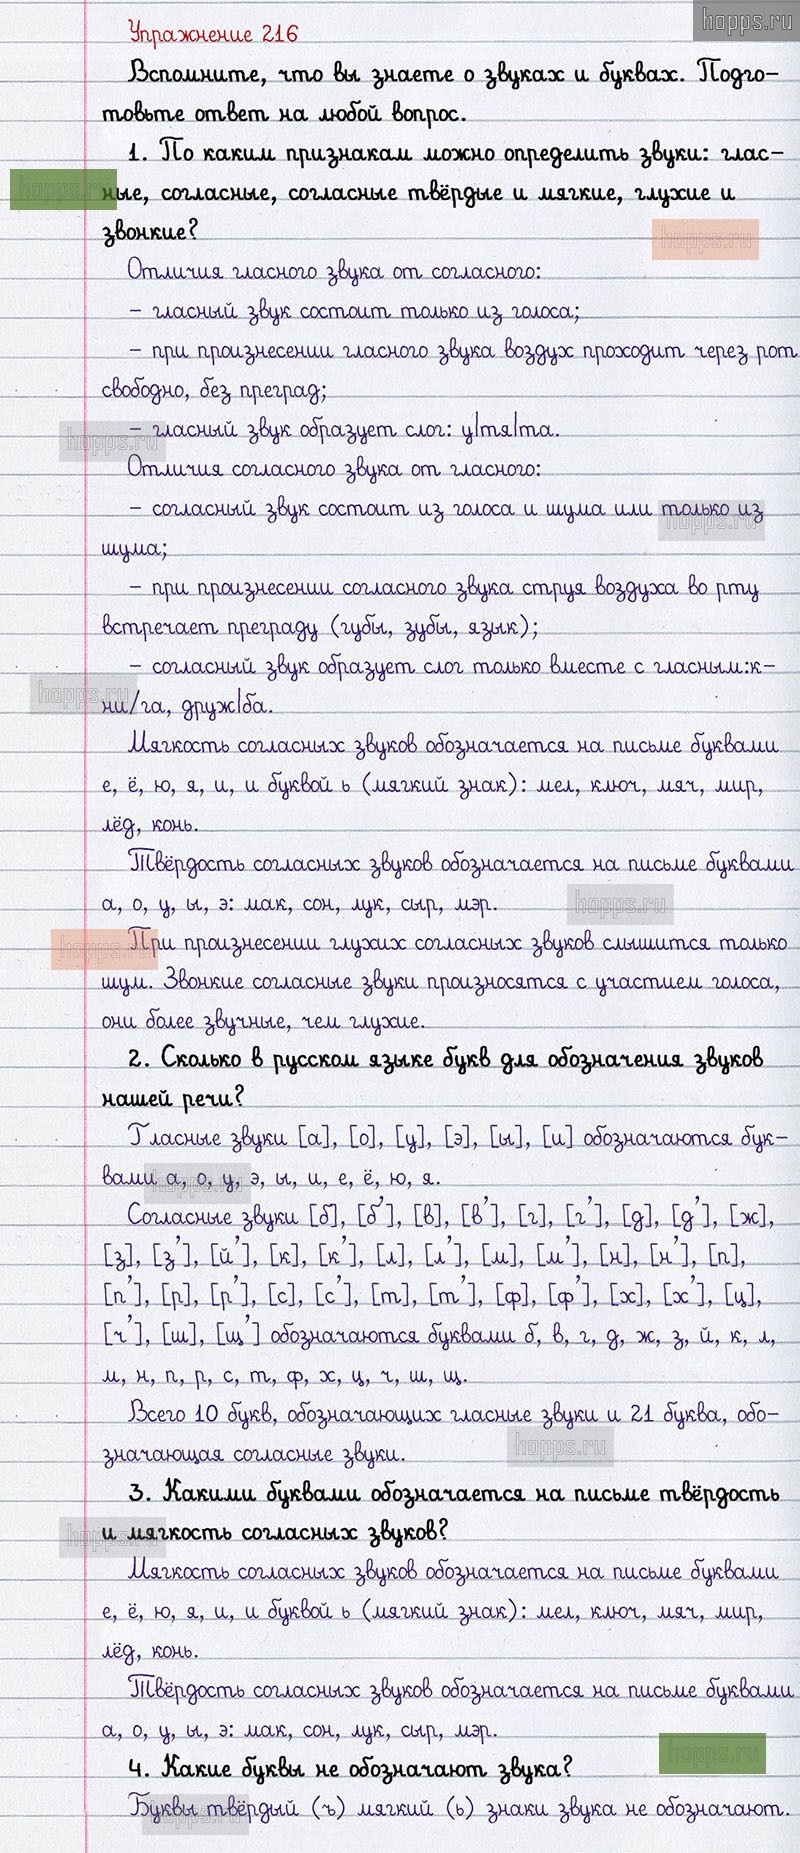 hopps.ru
Упражнение 216
Вспомните, что вы знаете о звуках и буквах. Подго-
товьте ответ на любой вопрос.
1. По каким признакам можно определить звуки: глас-
hopps.ru
ные, согласные, согласные твёрдые и мягкие, глухие и
звонкие?
hopps.ru
Отличия гласного звука от согласного:
– гласный звук состоит только из голоса;
– при произнесении гласного звука воздух проходит через рот
свободно, без преград;
– гласный звук образует слог: у|тя|та.
hopps.ru
Отличия согласного звука от гласного:
– согласный звук состоит из голоса и шума или только из
hopps.ru
шума;
– при произнесении согласного звука струя воздуха во рту
встречает преграду (губы, зубы, язык);
– согласный звук образует слог только вместе с гласным:к-
hopps.ru
ни/га, друж|ба.
Мягкость согласных звуков обозначается на письме буквами
е, ё, ю, я, и, и буквой ь (мягкий знак): мел, ключ, мяч, мир,
лёд, конь.
Твёрдость согласных звуков обозначается на письме буквами
а, о, у, ы, э: мак, сон, лук, сыр, мэр.
hopps.ru
При произнесении глухих согласных звуков слышится только
hopps.ru
шум. Звонкие согласные звуки произносятся с участием голоса,
они более звучные, чем глухие.
2. Сколько в русском языке букв для обозначения звуков
нашей речи?
Гласные звуки [а], [о], [у], [э], [ы], [и] обозначаются бук-
вами а, о, у, э, ы, и, е, ё, ю, я.
hopps.ru
Согласные звуки [б], [б’], [в], [в’], [г], [г’], [д], [д’], [ж],
[з], [з’], [й’], [к], [к’], [л], [л’], [м], [м’], [н], [н’], [п],
[п’], [р], [р’], [с], [с’], [т], [т’], [ф], [ф’], [х], [х’], [ц],
[ч’], [ш], [щ’] обозначаются буквами б, в, г, д, ж, з, й, к, л,
м, н, п, р, с, т, ф, х, ц, ч, ш, щ.
Всего 10 букв, обозначающих гласные звуки и 21 буква, обо-
hopps.ru
значающая согласные звуки.
3. Какими буквами обозначается на письме твёрдость
hopps.ru
и мягкость согласных звуков?
Мягкость согласных звуков обозначается на письме буквами
е, ё, ю, я, и, и буквой ь (мягкий знак): мел, ключ, мяч, мир,
лёд, конь.
Твёрдость согласных звуков обозначается на письме буквами
а, о, у, ы, э: мак, сон, лук, сыр, мэр.
hopps.ru
4. Какие буквы не обозначают звука?
Буквы твёрдый (ъ) мягкий (ь) знаки звука не обозначают.
hopps.ru